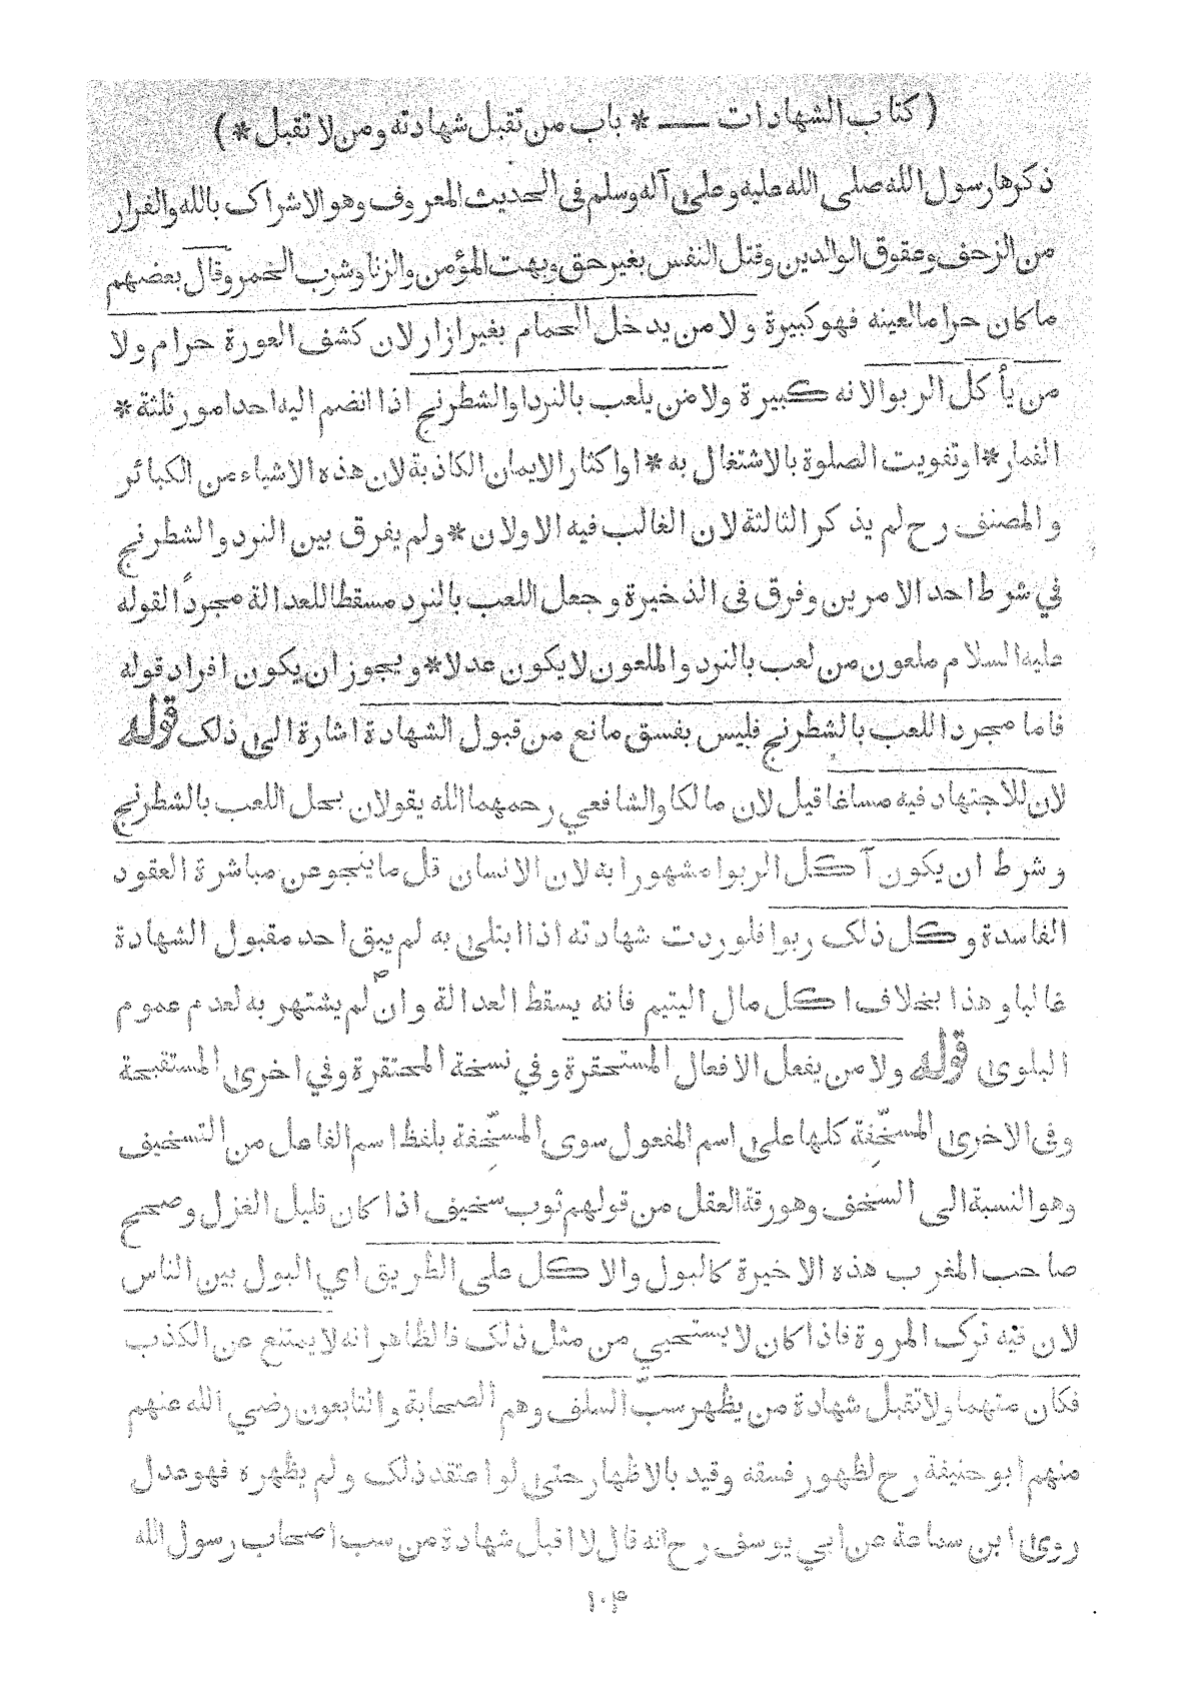 ( كتاب الشهادات — * باب من تقبل شهادته ومن لا تقبل * )
ذكرها رسول الله صلى الله عليه وعلى آله وسلم فى الحديث المعروف وهو الاشراك بالله والفرار
من الزحف وعقوق الوالدين وقتل النفس بغير حق وبهت المؤمن والزنا وشرب الخمر وقال بعضهم
ما كان حراما لعينه فهو كبيرة ولا من يدخل الحمام بغير ازار لان كشف العورة حرام ولا
من يأكل الربوا لانه كبيرة ولا من يلعب بالنرد او الشطرنج اذا انضم اليه احد امور ثلثة *
القمار * او تفويت الصلوة بالاشتغال به * او اكثار الايمان الكاذبة لان هذه الاشياء من الكبائر
والمصنف رح لم يذكر الثالثة لان الغالب فيه الاولان * ولم يفرق بين النرد والشطرنج
في شرط احد الامرين وفرق فى الذخيرة وجعل اللعب بالنرد مسقطا للعدالة مجرداً لقوله
عليه السلام ملعون من لعب بالنرد والملعون لا يكون عدلا * ويجوز ان يكون افراد قوله
فاما مجرد اللعب بالشطرنج فليس بفسق مانع من قبول الشهادة اشارة الى ذلك قوله
لان للاجتهاد فيه مساغا قيل لان مالكا والشافعي رحمهما الله يقولان بحل اللعب بالشطرنج
وشرط ان يكون آكل الربوا مشهورا به لان الانسان قل ما ينجو عن مباشرة العقود
الفاسدة وكل ذلك ربوا فلو ردت شهادته اذا ابتلى به لم يبق احد مقبول الشهادة
غالبا وهذا بخلاف اكل مال اليتيم فانه يسقط العدالة وان لم يشتهر به لعدم عموم
البلوى قوله ولا من يفعل الافعال المستحقرة وفي نسخة المحتقرة وفي اخرى المستقبحة
وفى الاخرى المسخّفة كلها على اسم المفعول سوى المسخّفة بلفظ اسم الفاعل من التسخيف
وهو النسبة الى السخف وهو رقة العقل من قولهم ثوب سخيف اذا كان قليل الغزل وصحح
صاحب المغرب هذه الاخيرة كالبول والاكل على الطريق اي البول بين الناس
لان فيه ترك المروة فاذا كان لا يستحيي من مثل ذلك فالظاهر انه لا يمتنع عن الكذب
فكان متهما ولا تقبل شهادة من يظهر سبّ السلف وهم الصحابة والتابعون رضي الله عنهم
منهم ابو حنيفة رح لظهور فسقه وقيد بالاظهار حتى لو اعتقد ذلك ولم يظهره فهو عدل
روى ابن سماعة عن ابي يوسف رح انه قال لا اقبل شهادة من سب اصحاب رسول الله
۱۰۴